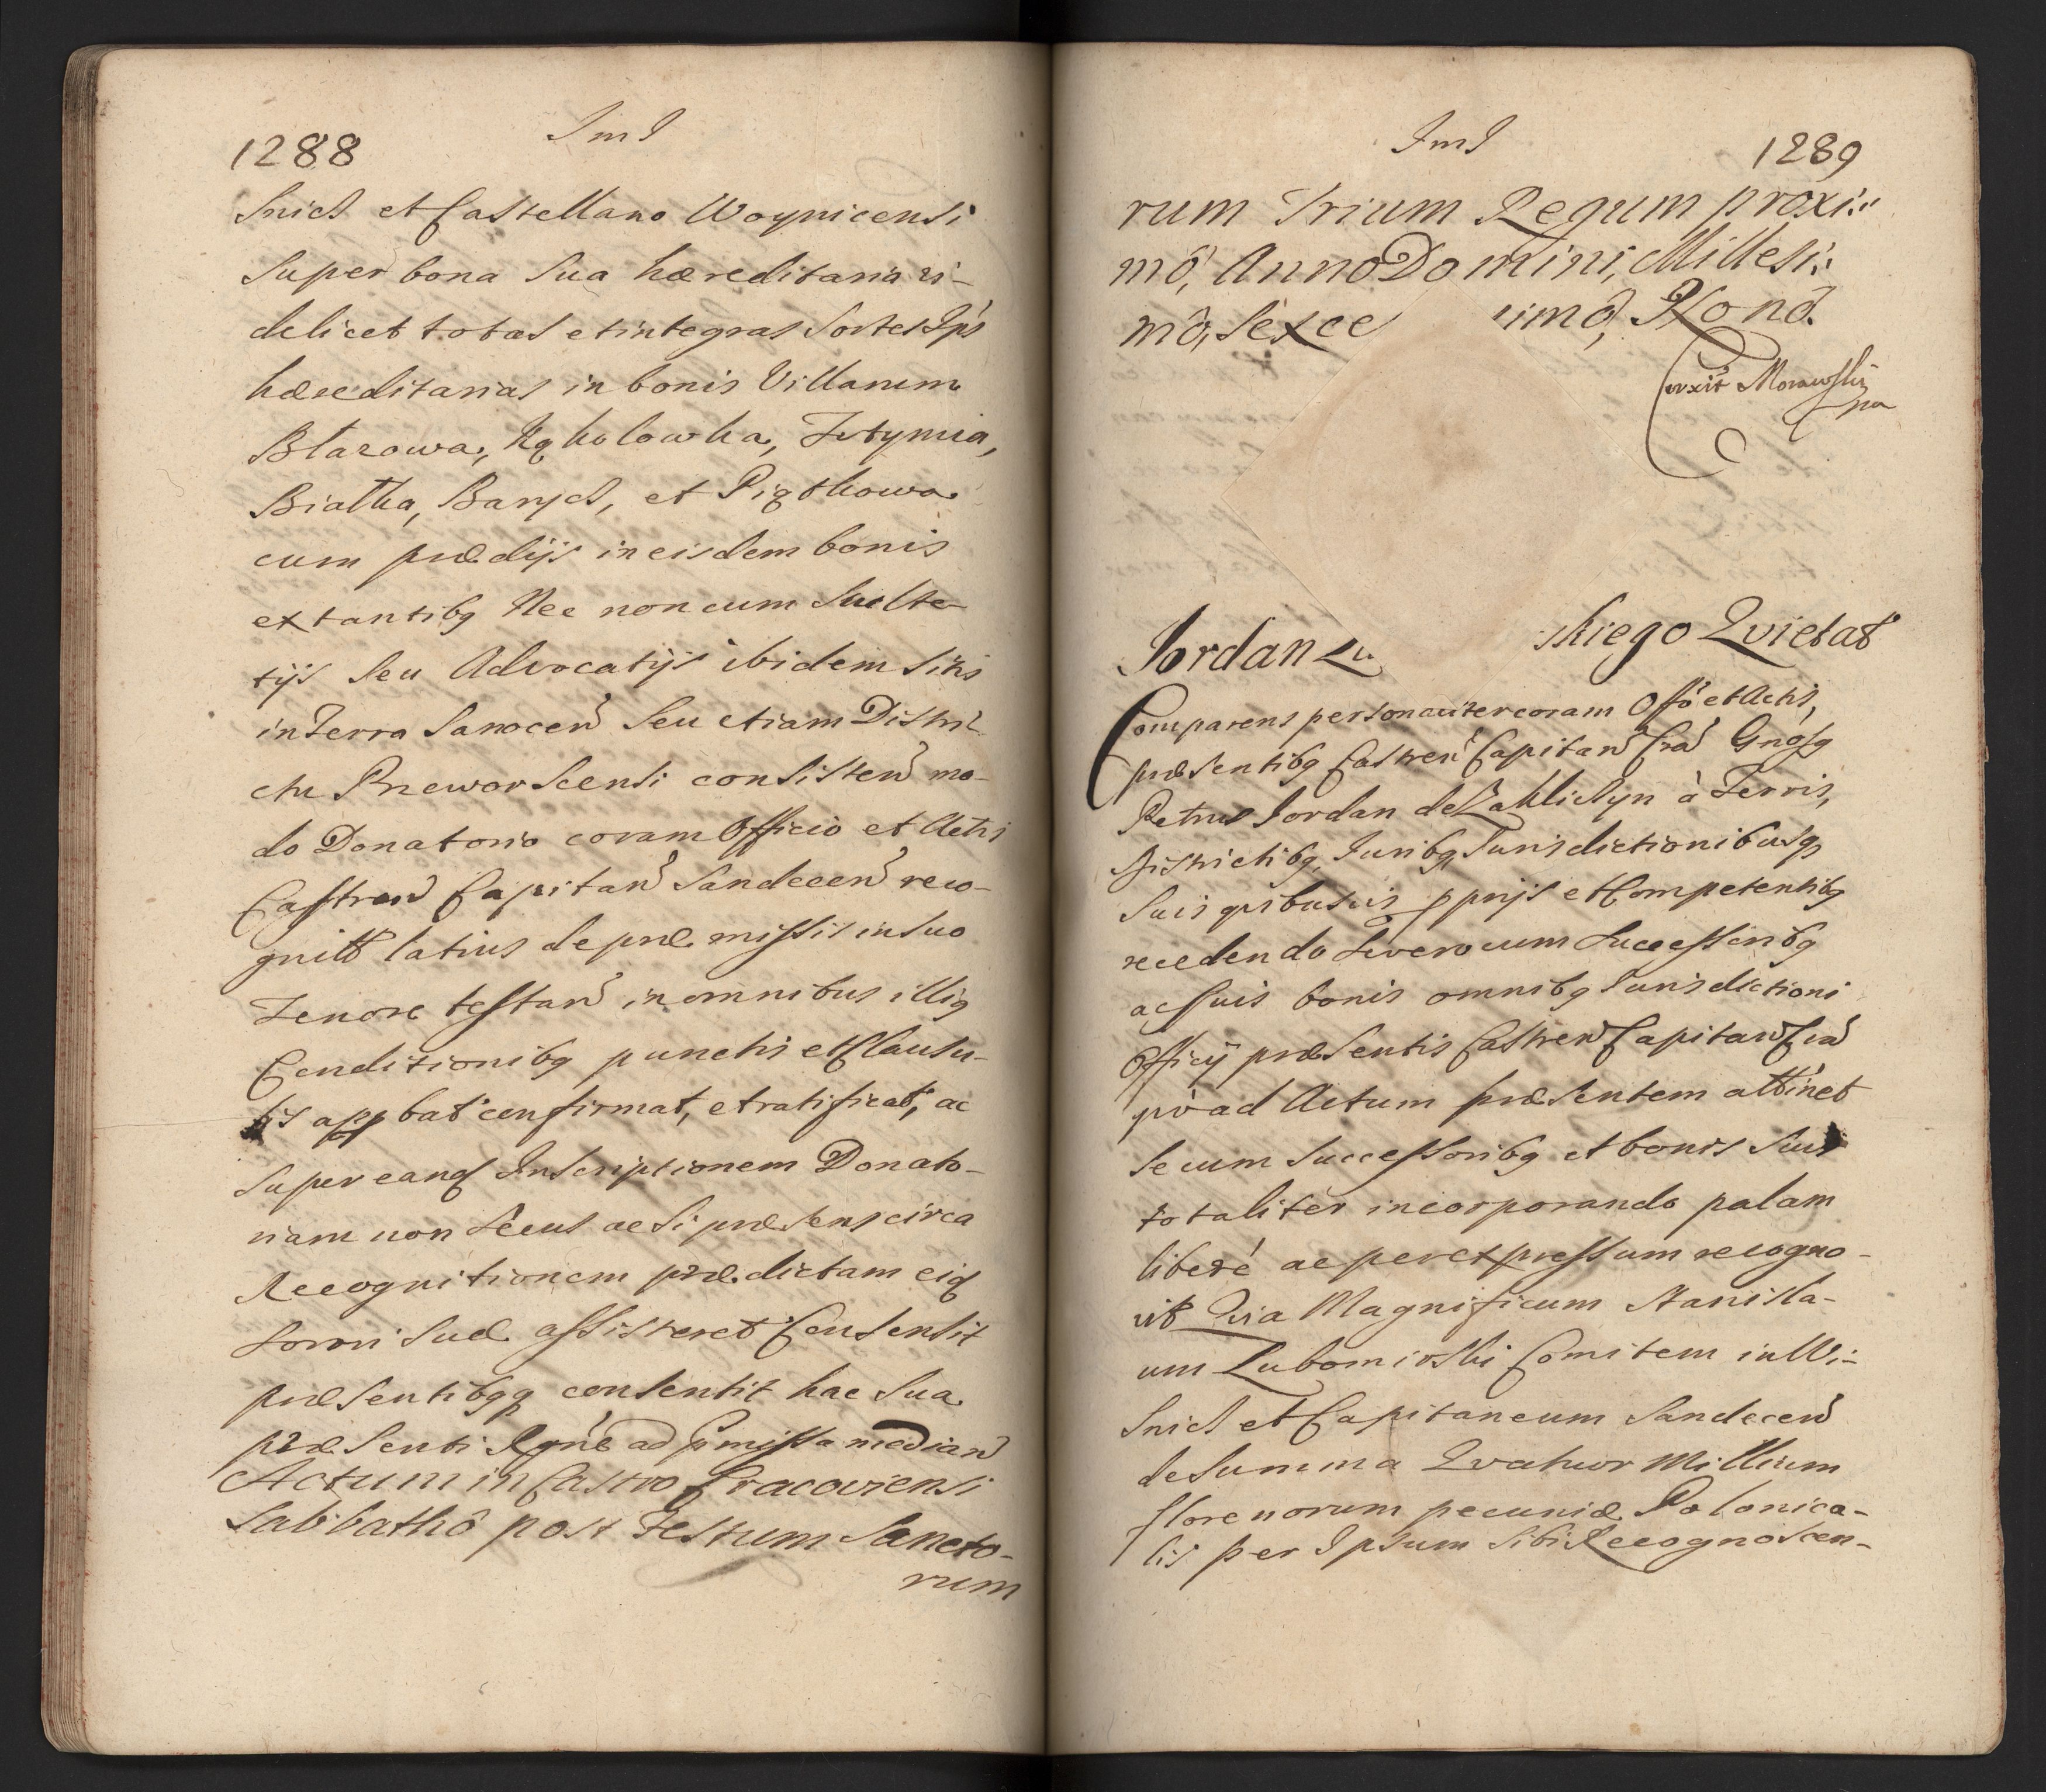 1288
ImJ
Snicz et Castellano Woynicensi
Super bona Sua hæreditaria vi-
delicet totas et integras Sortes Ips
hæreditarias in bonis Villarum
Błazowa, Kąkolowka,
Białka, Barycz, et Piątkowa
cum prædijs in eisdem bonis
extantibq Nec non cum Sculte-
tijs Seu Advocatijs ibidem Sitis
in Terra Sanocen Seu etiam Distri-
ctu Przeworscensi consisten mo-
do Donatorio coram Officio et Actis
Castren Capitan Sandecen reco-
gnitt latius de præmissis in suo
Tenore testan in omnibus illiq
Conditionibq punctis et Clausu-
lis appbat confirmat, et ratificat, ac
Super eand Inscriptionem Donato-
riam non Secus ac Si præsens circa
Recognitionem prædictam eid
Sorori Suæ assisteret Consensit
præsentibqq consentit hac Sua
præsenti Rgne ad pmissa median
Actum in Castro Cracoviensi
Sabbathô post Festum Sancto-
rum
ImJ
1289
rum Trium Regum proxi:
mô, Anno Domini, Millesi:
mô, Sexce imô, Nonô.
Corexit Morawski
mp
Jordan Lu skiego Qvietat
Comparens personaliter coram Offo et Actis,
præsentibq Castren Capitan Cra Gnosq
Petrus Jordan de Zakliczyn à Terris,
Districtibq, Juribq Jurisdictionibusq
Suis qvibusvis pprijs et Competentibq
recedendo Se vero cum Successoribq
ac suis bonis omnibq Jurisdictioni
Officij præsentis Castren Capitan Cra
qvò ad Actum præsentem attinet
Se cum Successoribq et bonis Suis
totaliter incorporando palam
liberé ac per expressum recogno-
vit Qvia Magnificum Stanisla-
um Lubomirski Comitem in Wi-
Snicz et Capitaneum Sandecen
de Summa Qvatuor Millium
florenorum pecuniæ Polonica-
lis per Ipsum Sibi Recognoscen-